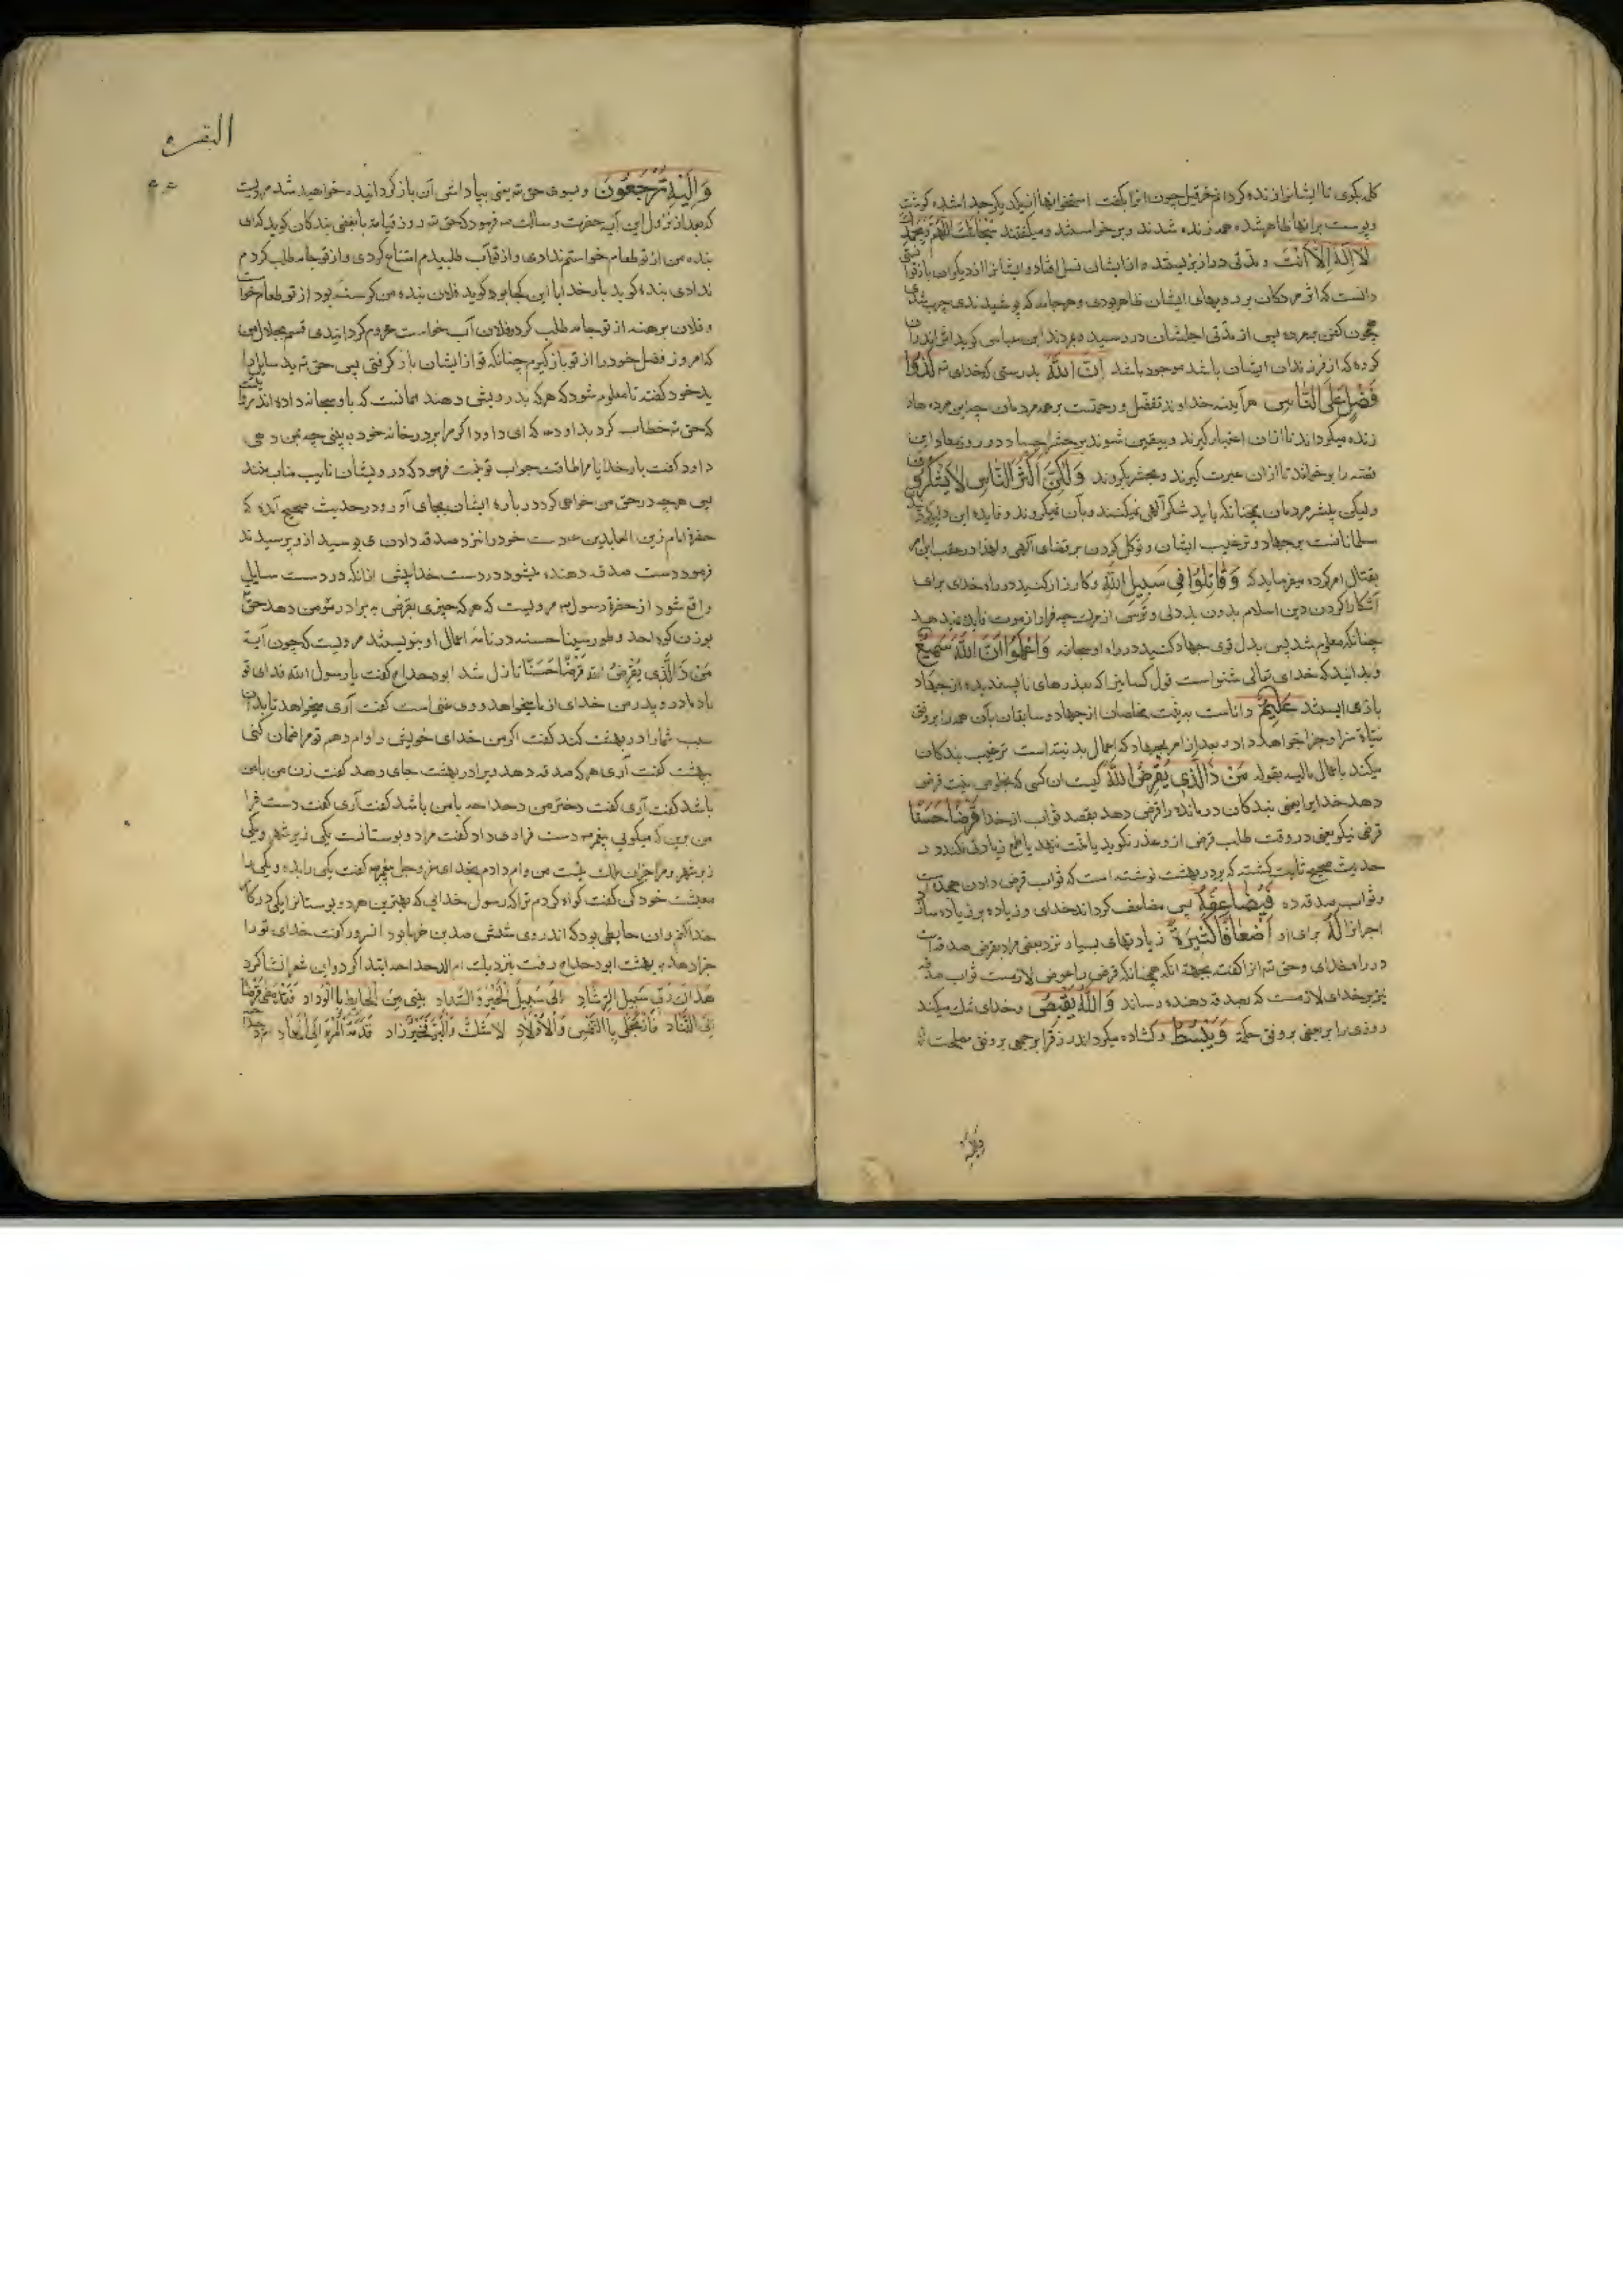 کله بکوی تا ایشانرا زنده کردانم حزقیل چون این را بکفت استخوانها از یکدیکر جدا شده کوشت
و پوست بر انها ظاهر شده همه زنده شدند و برخواستند و میکفتند سُبْحانَكَ اللّٰهُمَّ وَبِحَمْدِكَ
لَا اِلٰهَ اِلَّا اَنْتَ و مدتی دراز بزیستند و از ایشان نسل افتاد و ایشانرا از دیکران باز توا
دانست که اثر مردکان بر رویهای ایشان ظاهر بودی و هر جامه که پوشیدندی چرب شدی
همچون کفن مرده پس از مدتی اجلشان در رسید بمردند ابن عباس کوید
کرده که از فرزندان ایشان باشد موجود باشد اِنَّ اللّٰهَ بدرستی که خدای تع لَذُوا
فَضْلٍ عَلَى النَّاسِ هرآینه خداوند تفضل و رحمتست بر همه مردمان چه این مرده
زنده میکرداند تا از ان اعتبار کیرند و بیقین شوند بر حشر اجساد در روز معاد و این
قصه را بر خواند تا از ان عبرت کیرند و بحشر بکروند وَلٰكِنَّ اَكْثَرَ النَّاسِ لَا يَشْكُرُونَ
ولیکن بیشتر مردمان چنانکه باید شکر آلهی نمیکنند و بآن نمیکروند و فایده این
مسلمانانست بر جهاد و ترغیب ایشان و توکل کردن بر قضای آلهی و لهذا در عقب این
بقتال امر کرده میفرماید که وَقَاتِلُوا فِي سَبِيلِ اللّٰهِ و کارزار کنید در راه خدای برای
آشکارا کردن دین اسلام بدون بددلی و ترس از مرک چه فرار از موت فایده نمیدهد
چنانکه معلوم شد پس بدل قوی جهاد کنید در راه او سبحانه وَاعْلَمُوا اَنَّ اللّٰهَ سَمِيعٌ
و بدانید که خدای تعالی شنواست قول کسانیرا که بعذرهای ناپسندیده از جهاد
باز می ایستند عَلِيمٌ داناست به نیت مخلصان از جهاد و سابقان بآن همه را بر وفق
نیاة سزا و جزا خواهد داد و بعد از امر بجهاد که اعمال بدنیه است ترغیب بندکان
میکند باعمال مالیه بقوله مَنْ ذَا الَّذِي يُقْرِضُ اللّٰهَ کیست ان کسی که بخلوص نیت قرض
دهد خدایرا یعنی بندکان درمانده را قرض دهد بقصد ثواب از خدا قَرْضًا حَسَنًا
قرض نیکو یعنی در وقت طلب قرض از و عذر نکوید یا منت ننهد یا طمع زیادتی نکند و در
حدیث صحیح ثابت کشته که بر در بهشت نوشته است که ثواب قرض دادن هجده است
و ثواب صدقه ده فَيُضَاعِفَهُ پس مضاعف کرداند خدای و زیاده بر زیاده سازد
اجر انرا لَهُ برای او اَضْعَافًا كَثِيرَةً زیادتیهای بسیار نزد بعضی مراد بقرض صدقه است
در راه خدای و حق تع انرا کفته بجهة انکه همچنانکه قرض را عوض لازمست ثواب صدقه
نیز بر خدای لازمست که بصدقه دهنده رساند وَاللّٰهُ يَقْبِضُ و خدای تنک میکند
روزی را بر بعضی بر وفق حکمة وَيَبْسُطُ و کشاده میکرداند رزق را بر جمعی بر وفق مصلحت
والیه
البقره
وَاِلَيْهِ تُرْجَعُونَ و بسوی حق تع یعنی بپاداش آن بازکردانیده خواهید شد مرویست
که بعد از نزول این آیه حضرت رسالت ص فرمود که حق تع روز قیامة با بعضی بندکان کوید که ای
بنده من از تو طعام خواستم ندادی و از تو آب طلبیدم امتناع کردی و از تو جامه طلب کردم
ندادی بنده کوید بار خدایا این کجا بود کوید فلان بنده من کرسنه بود از تو طعام خواست
و فلان برهنه از تو جامه طلب کرد و فلان آب خواست محروم کردانیدی قسم بجلال من
که امروز فضل خود را از تو بازکیرم چنانکه تو از ایشان باز کرفتی پس حق تع ید سایل را
ید خود کفته تا معلوم شود که هر که بدرویشی دهند همانست که باو سبحانه داده اند
که حق تع خطاب کرد بداود ع که ای داود اکر مرا بر در خانه خود به بینی چه بمن دهی
داود کفت بار خدایا مرا طاقت جواب تو نیست فرمود که درویشان نایب مناب منند
پس هر چه در حق من خواهی کرد درباره ایشان بجای آور و در حدیث صحیح آمده که
حضرة امام زین العابدین ع دست خود را نزد صدقه دادن می بوسید از و پرسیدند
فرمود دست صدقه دهنده میشود در دست خدا پیش از انکه در دست سایل
واقع شود از حضرة رسول ص مرویست که هر که چیزی بقرض به برادر مؤمن دهد حق تع
بوزن کوه احد و طور سینا حسنه در نامه اعمال او بنویسند مرویست که چون آیه
مَنْ ذَا الَّذِي يُقْرِضُ اللّٰهَ قَرْضًا حَسَنًا نازل شد ابودحداح کفت یا رسول الله فدای تو
باد مادر و پدر من خدای از ما میخواهد و وی غنی است کفت آری میخواهد تا بدان
سبب شما را در بهشت کند کفت اکر من خدای خویش را وام دهم تو مرا ضمان کنی
بهشت کفت آری هر که صدقه دهد ویرا در بهشت جای دهد کفت زن من با من
باشد کفت آری کفت دختر من دحداحه با من باشد کفت آری کفت دست فرا
من برین که میکویی پیغمبر ص دست فرا وی داد کفت مرا دو بوستانست یکی زیر شهر و یکی
زبر شهر و مرا جز ان ملک نیست من وام دادم بخدای عز و جل پیغمبر ص کفت یکی را بده و یکی را
معیشت خود کن کفت کواه کردم ترا که رسول خدایی که بهترین هر دو بوستانرا یکی در کار
خدا کنم و ان حایطی بود که اندر وی ششصد بن خرما بود انسرور کفت خدای تو را
جزا دهد به بهشت ابودحداح رفت بنزدیک ام الدحداحه ابتدا کرد و این شعر انشا کرد
هَدَاكَ رَبِّي سَبِيلَ الرَّشَادِ اِلَى سَبِيلِ الْخَيْرِ وَالسَّدَادِ بِينِي مِنَ الْحَايِطِ بِالْوِدَادِ فَقَدْ مَضَى قَرْضًا
اِلَى التَّنَادِ فَارْتَحِلِي بِالنَّفْسِ وَالْاَوْلَادِ لَا شَكَّ وَالْبِرُّ فَخَيْرُ زَادٍ قَدَّمَهُ الْمَرْءُ اِلَى الْمَعَادِ